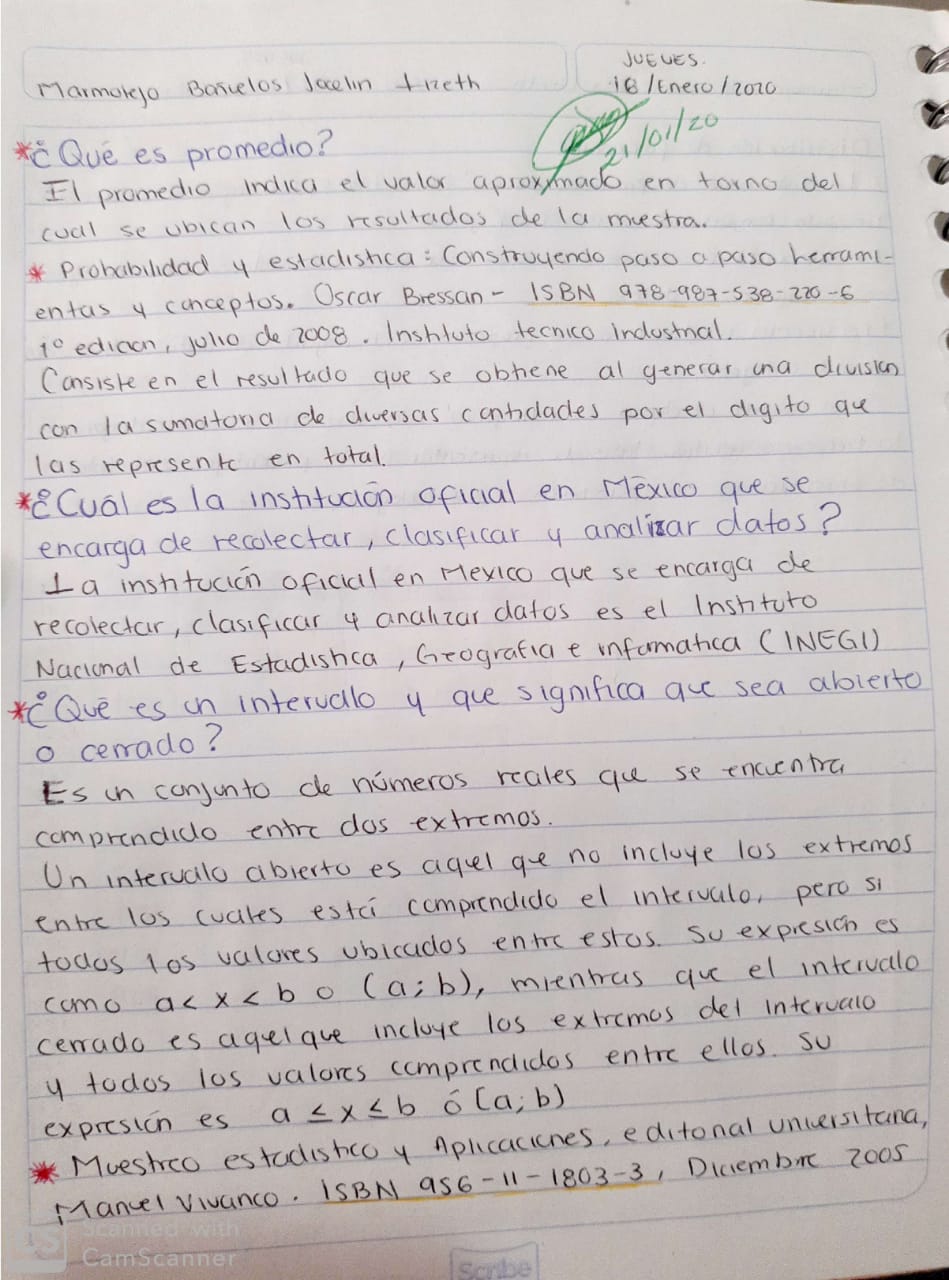 JUEVES.
Marmolejo Bañuelos Jocelin Lizeth
16/Enero/2020
21/01/20
*¿Qué es promedio?
El promedio indica el valor aproximado en torno del
cual se ubican los resultados de la muestra.
* Probabilidad y estadistica: Construyendo paso a paso herrami-
entas y conceptos. Oscar Bressan - ISBN 978-987-538-220-6
1º edicion, julio de 2008. Instituto tecnico Industrial.
Consiste en el resultado que se obtiene al generar una division
con la sumatoria de diversas cantidades por el digito que
las represente en total.
*¿Cuál es la institución oficial en México que se
encarga de recolectar, clasificar y analizar datos?
La institución oficial en Mexico que se encarga de
recolectar, clasificar y analizar datos es el Instituto
Nacional de Estadistica, Geografia e informatica (INEGI)
*¿Qué es un intervalo y que significa que sea abierto
o cerrado?
Es un conjunto de números reales que se encuentra
comprendido entre dos extremos.
Un intervalo abierto es aquel que no incluye los extremos
entre los cuales está comprendido el intervalo, pero si
todos los valores ubicados entre estos. Su expresión es
como a < x < b o (a; b), mientras que el intervalo
cerrado es aquel que incluye los extremos del intervalo
y todos los valores comprendidos entre ellos. Su
expresión es a ≤ x ≤ b ó [a; b]
* Muestreo estadistico y Aplicaciones, editorial universitaria,
Manuel Vivanco. ISBN 956-11-1803-3, Diciembre 2005
CS Scanned with
CamScanner
Scribe